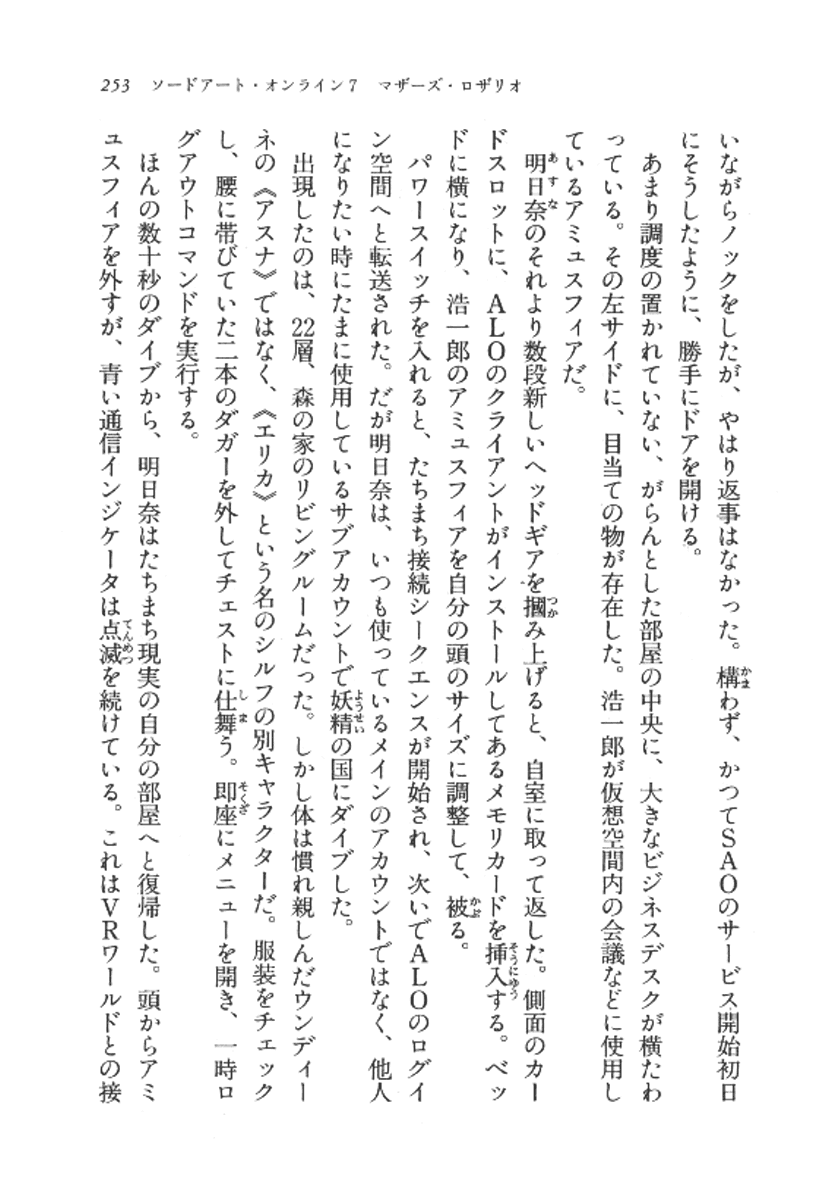 253　ソードアート・オンライン7　マザーズ・ロザリオ
いながらノックをしたが、やはり返事はなかった。構わず、かつてSAOのサービス開始初日
にそうしたように、勝手にドアを開ける。
　あまり調度の置かれていない、がらんとした部屋の中央に、大きなビジネスデスクが横たわ
っている。その左サイドに、目当ての物が存在した。浩一郎が仮想空間内の会議などに使用し
ているアミュスフィアだ。
　明日奈のそれより数段新しいヘッドギアを摑み上げると、自室に取って返した。側面のカー
ドスロットに、ALOのクライアントがインストールしてあるメモリカードを挿入する。ベッ
ドに横になり、浩一郎のアミュスフィアを自分の頭のサイズに調整して、被る。
　パワースイッチを入れると、たちまち接続シークエンスが開始され、次いでALOのログイ
ン空間へと転送された。だが明日奈は、いつも使っているメインのアカウントではなく、他人
になりたい時にたまに使用しているサブアカウントで妖精の国にダイブした。
　出現したのは、22層、森の家のリビングルームだった。しかし体は慣れ親しんだウンディー
ネの《アスナ》ではなく、《エリカ》という名のシルフの別キャラクターだ。服装をチェック
し、腰に帯びていた二本のダガーを外してチェストに仕舞う。即座にメニューを開き、一時ロ
グアウトコマンドを実行する。
　ほんの数十秒のダイブから、明日奈はたちまち現実の自分の部屋へと復帰した。頭からアミ
ュスフィアを外すが、青い通信インジケータは点滅を続けている。これはVRワールドとの接